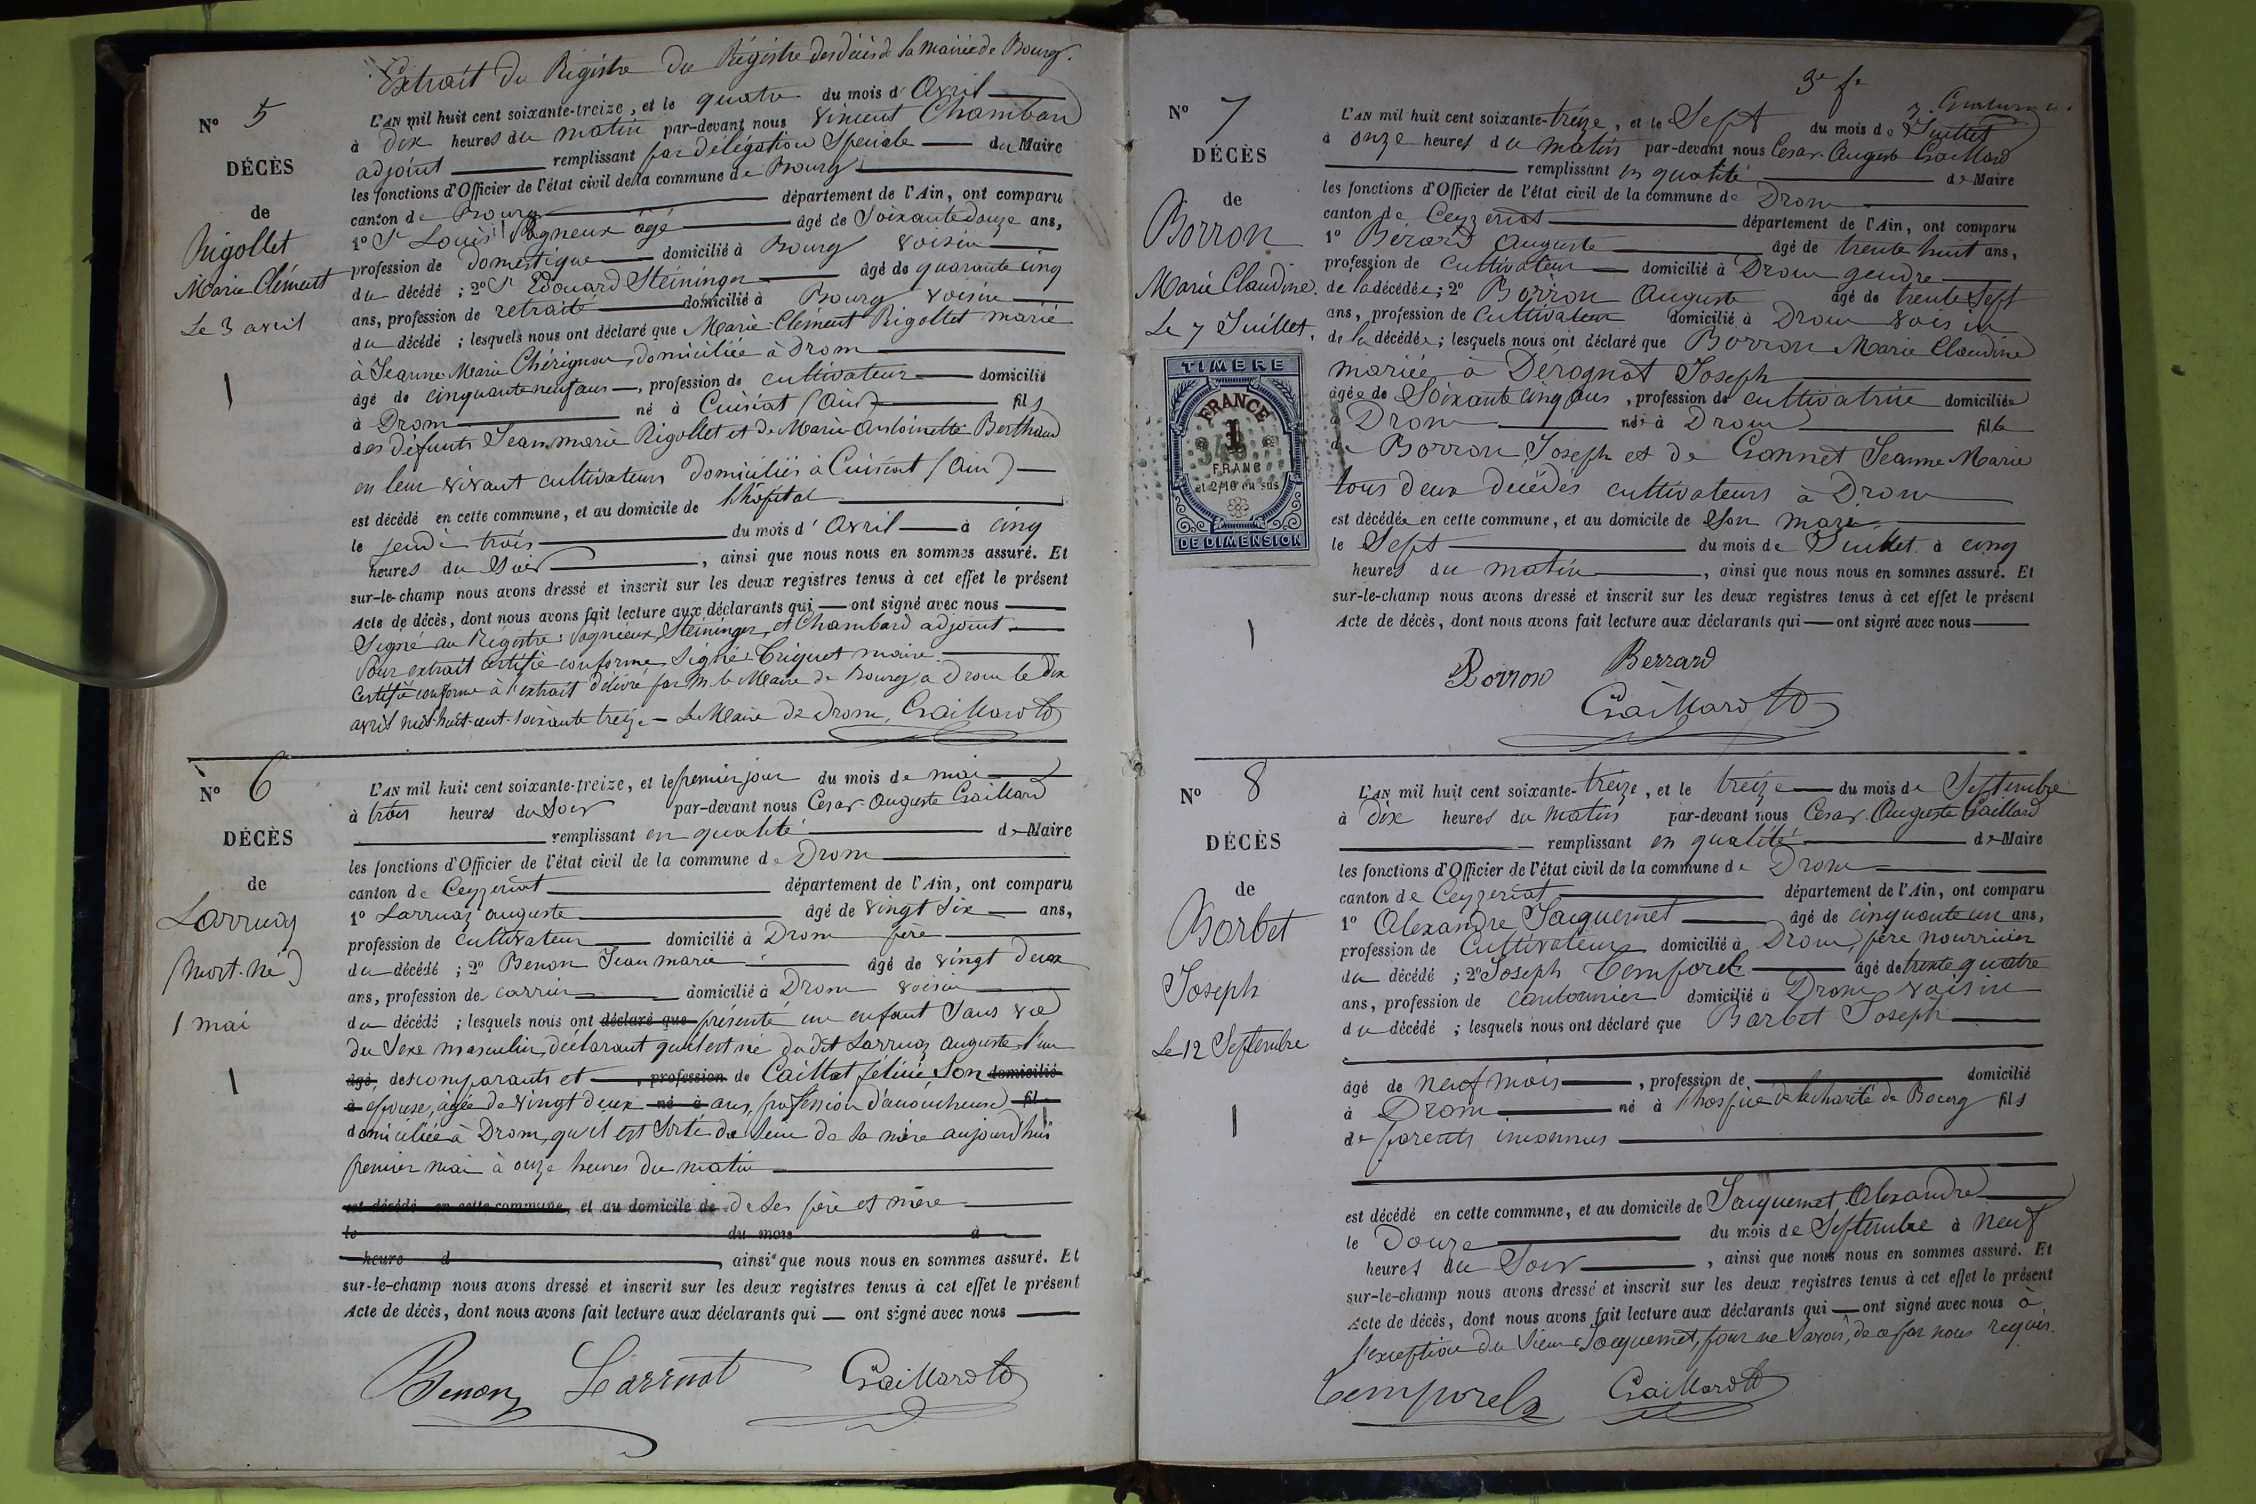 Extrait du Registre du Régistre des décès de la mairie de Bourg.
N° 5
DÉCÈS
de
Rigollet
Marie Clément
Le 3 avril
1
L'AN mil huit cent soixante-treize, et le quatre du mois d'Avril
à dix heures du matin par-devant nous Vincent Chambard
adjoint remplissant par délégation Spéciale du Maire
les fonctions d'Officier de l'état civil de la commune de Bourg
canton de Bourg département de l'Ain, ont comparu
1° Sr Louis Pagneux âgé âgé de Soixante douze ans,
profession de domestique domicilié à Bourg voisin
du décédé ; 2° Sr Edouard Steininger âgé de quarante cinq
ans, profession de retraité domicilié à Bourg voisin
du décédé ; lesquels nous ont déclaré que Marie-Clément Rigollet marié
à Jeanne Marie Chérignon domiciliée à Drom
âgé de cinquante neuf ans, profession de cultivateur domicilié
à Drom né à Cuisiat (Ain) fils
des défunts Jean marie Rigollet et de Marie-Antoinette Berthaud
en leur vivant cultivateurs domiciliés à Cuisiat (Ain)
est décédé en cette commune, et au domicile de l'hôpital
le jeudi trois du mois d'Avril à cinq
heures du Soir, ainsi que nous nous en sommes assuré. Et
sur-le-champ nous avons dressé et inscrit sur les deux registres tenus à cet effet le présent
Acte de décès, dont nous avons fait lecture aux déclarants qui ont signé avec nous
Signé au Registre: Pagneux, Steininger, et Chambard adjoint
Pour extrait certifié conforme, Signé: Criquet maire.
Certifié conforme à l'extrait délivré par M. le Maire de Bourg, à Drom le dix
avril mil-huit-cent-soixante treize - Le Maire de Drom, Gaillard
N° 6
DÉCÈS
de
Larruaz
(Mort-né)
1 mai
1
L'AN mil huit cent soixante-treize, et le premier jour du mois de mai
à trois heures du Soir par-devant nous Cesar-Auguste Gaillard
remplissant en qualité de Maire
les fonctions d'Officier de l'état civil de la commune de Drom
canton de Ceyzeriat département de l'Ain, ont comparu
1° Larruaz auguste âgé de vingt Six ans,
profession de cultivateur domicilié à Drom père
du décédé ; 2° Benon Jean marie âgé de vingt deux
ans, profession de carrier domicilié à Drom voisin
du décédé ; lesquels nous ont déclaré que présenté un enfant Sans vie
du Sexe masculin, déclarant qu'il est né dudit Larruaz auguste l'un
âgé, des comparants et, profession de Caillat féliué Son domicilié
à épouse, agée de vingt deux né à ans, profession d'accoucheuse fil
domiciliée à Drom, qu'il est Sorti du Sein de Sa mère aujourd'hui
premier mai à onze heures du matin
est décédé en cette commune, et au domicile de de Ses père et mère
le du mois à
heure d, ainsi que nous nous en sommes assuré. Et
sur-le-champ nous avons dressé et inscrit sur les deux registres tenus à cet effet le présent
Acte de décès, dont nous avons fait lecture aux déclarants qui ont signé avec nous
Benon Larruat Gaillard
3e f.
N° 7
DÉCÈS
de
Borron
Marie Claudine.
Le 7 Juillet.
TIMBRE
FRANCE
1
FRANC
et 2/10 en sus
DE DIMENSION
1
L'AN mil huit cent soixante-treize, et le Sept du mois de Juillet
à onze heures du matin par-devant nous Cesar-Auguste Gaillard
remplissant en qualité de Maire
les fonctions d'Officier de l'état civil de la commune de Drom
canton de Ceyzeriat département de l'Ain, ont comparu
1° Bérard Auguste âgé de trente huit ans,
profession de Cultivateur domicilié à Drom gendre
de la décédée ; 2° Borron Auguste âgé de trente Sept
ans, profession de Cultivateur domicilié à Drom voisin
de la décédée ; lesquels nous ont déclaré que Borron Marie Claudine
mariée à Dérognat Joseph
âgée de Soixante cinq ans, profession de cultivatrice domiciliée
à Drom née à Drom fille
de Borron Joseph et de Gonnet Jeanne Marie
tous deux décédés cultivateurs à Drom
est décédée en cette commune, et au domicile de Son mari
le Sept du mois de Juillet à cinq
heures du matin, ainsi que nous nous en sommes assuré. Et
sur-le-champ nous avons dressé et inscrit sur les deux registres tenus à cet effet le présent
Acte de décès, dont nous avons fait lecture aux déclarants qui ont signé avec nous
Borron Berrard
Gaillard
N° 8
DÉCÈS
de
Barbet
Joseph
Le 12 Septembre
1
L'AN mil huit cent soixante-treize, et le treize du mois de Septembre
à dix heures du matin par-devant nous Cesar-Auguste Gaillard
remplissant en qualité de Maire
les fonctions d'Officier de l'état civil de la commune de Drom
canton de Ceyzeriat département de l'Ain, ont comparu
1° Alexandre Jacquemet âgé de cinquante un ans,
profession de Cultivateur domicilié à Drom, père nourricier
du décédé ; 2° Joseph Temporel âgé de trente quatre
ans, profession de cantonnier domicilié à Drom voisin
du décédé ; lesquels nous ont déclaré que Barbet Joseph
âgé de neuf mois, profession de domicilié
à Drom né à l'hospice de la charité de Bourg fils
de parents inconnus
est décédé en cette commune, et au domicile de Jacquemet Alexandre
le Douze du mois de Septembre à neuf
heures du Soir, ainsi que nous nous en sommes assuré. Et
sur-le-champ nous avons dressé et inscrit sur les deux registres tenus à cet effet le présent
Acte de décès, dont nous avons fait lecture aux déclarants qui ont signé avec nous à
l'exception du Sieur Jacquemet, pour ne Savoir, de ce par nous requis.
Temporel Gaillard